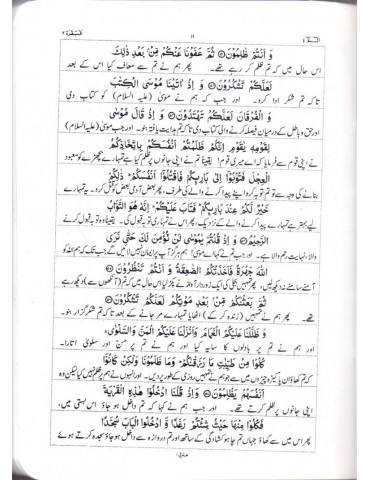 البقرة ٢
١١
الٓمّٓ ١
وَ اَنْتُمْ ظٰلِمُوْنَ ۝ ثُمَّ عَفَوْنَا عَنْكُمْ مِّنْۢ بَعْدِ ذٰلِكَ
اس حال میں کہ تم ظلم کر رہے تھے۔ پھر ہم نے تم سے معاف کیا اس کے بعد
لَعَلَّكُمْ تَشْكُرُوْنَ ۝ وَ اِذْ اٰتَيْنَا مُوْسَى الْكِتٰبَ
تاکہ تم شکر ادا کرو۔ اور جب کہ ہم نے موسیٰ (علیہ السلام) کو کتاب دی
وَ الْفُرْقَانَ لَعَلَّكُمْ تَهْتَدُوْنَ ۝ وَ اِذْ قَالَ مُوْسٰى
اور حق و باطل کے درمیان فیصلہ کرنے والی کتاب دی تاکہ تم ہدایت یافتہ ہو۔ اور جب موسیٰ (علیہ السلام) نے
لِقَوْمِهٖ يٰقَوْمِ اِنَّكُمْ ظَلَمْتُمْ اَنْفُسَكُمْ بِاتِّخَاذِكُمُ
اپنی قوم سے فرمایا کہ اے میری قوم! یقیناً تم نے اپنی جانوں پر ظلم کیا ہے تمہارے بچھڑے کو معبود
الْعِجْلَ فَتُوْبُوْٓا اِلٰى بَارِئِكُمْ فَاقْتُلُوْٓا اَنْفُسَكُمْ ؕ ذٰلِكُمْ
بنانے کی وجہ سے تو تم توبہ کرو اپنے پیدا کرنے والے کی طرف، پھر بعض آدمی بعض کو قتل کرو۔ یہ
خَيْرٌ لَّكُمْ عِنْدَ بَارِئِكُمْ ؕ فَتَابَ عَلَيْكُمْ ؕ اِنَّهٗ هُوَ التَّوَّابُ
لیے بہتر ہے تمہارے پیدا کرنے والے کے نزدیک، پھر اس نے تمہاری توبہ قبول کی۔ یقیناً وہ توبہ قبول کرنے
الرَّحِيْمُ ۝ وَ اِذْ قُلْتُمْ يٰمُوْسٰى لَنْ نُّؤْمِنَ لَكَ حَتّٰى نَرَى
والا، نہایت رحم والا ہے۔ اور جب تم نے کہا اے موسیٰ! ہم ہرگز آپ پر ایمان نہیں لائیں گے جب تک کہ ہم اللہ کو
اللّٰهَ جَهْرَةً فَاَخَذَتْكُمُ الصّٰعِقَةُ وَ اَنْتُمْ تَنْظُرُوْنَ ۝
آمنے سامنے نہ دیکھ لیں، پھر تمہیں بجلی کی ایک زوردار آواز نے پکڑ لیا اس حال میں کہ تم (آنکھوں سے) دیکھ رہے
ثُمَّ بَعَثْنٰكُمْ مِّنْۢ بَعْدِ مَوْتِكُمْ لَعَلَّكُمْ تَشْكُرُوْنَ ۝
پھر ہم نے تمہیں (زندہ کرکے) اٹھایا تمہارے مر جانے کے بعد تاکہ تم شکر گزار بنو۔
وَ ظَلَّلْنَا عَلَيْكُمُ الْغَمَامَ وَ اَنْزَلْنَا عَلَيْكُمُ الْمَنَّ وَ السَّلْوٰى ؕ
اور ہم نے تم پر بادلوں کا سایہ کیا اور ہم نے تم پر من اور سلویٰ اتارا۔
كُلُوْا مِنْ طَيِّبٰتِ مَا رَزَقْنٰكُمْ ؕ وَمَا ظَلَمُوْنَا وَلٰكِنْ كَانُوْٓا
کہ کھاؤ ان پاکیزہ چیزوں میں سے جو ہم نے تمہیں روزی کے طور پر دیں۔ اور انہوں نے ہم پر ظلم نہیں کیا لیکن وہ
اَنْفُسَهُمْ يَظْلِمُوْنَ ۝ وَ اِذْ قُلْنَا ادْخُلُوْا هٰذِهِ الْقَرْيَةَ
اپنی جانوں پر ظلم کرتے تھے۔ اور جب ہم نے کہا کہ تم داخل ہو جاؤ اس بستی میں،
فَكُلُوْا مِنْهَا حَيْثُ شِئْتُمْ رَغَدًا وَّ ادْخُلُوا الْبَابَ سُجَّدًا
پھر اس میں سے کھاؤ جہاں تم چاہو کشادگی کے ساتھ اور تم دروازہ سے داخل ہو جاؤ سجدہ کرتے ہوئے